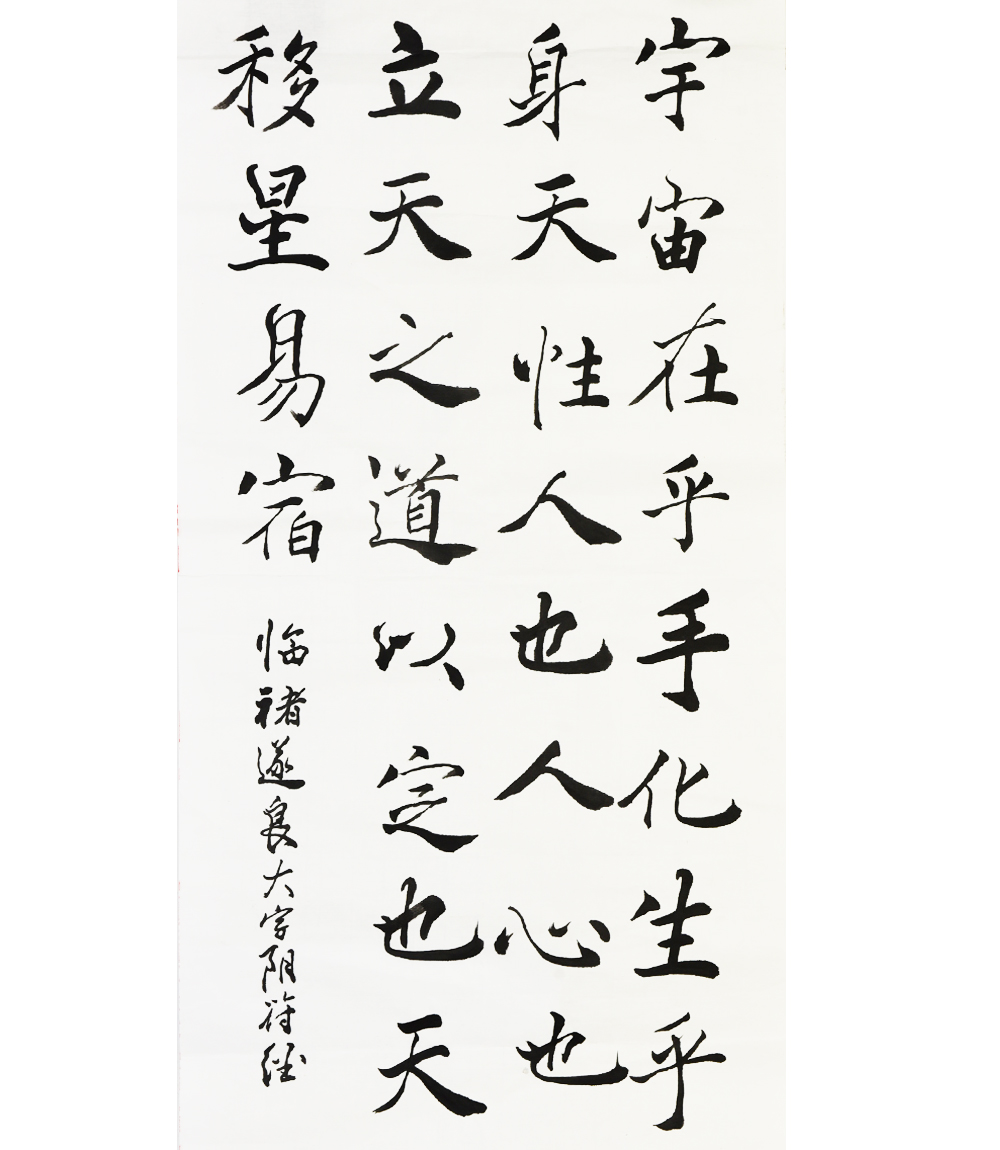 宇宙在乎手化生乎
身天性人也人心也
立天之道以定也天
移星易宿
临褚遂良大字阴符经